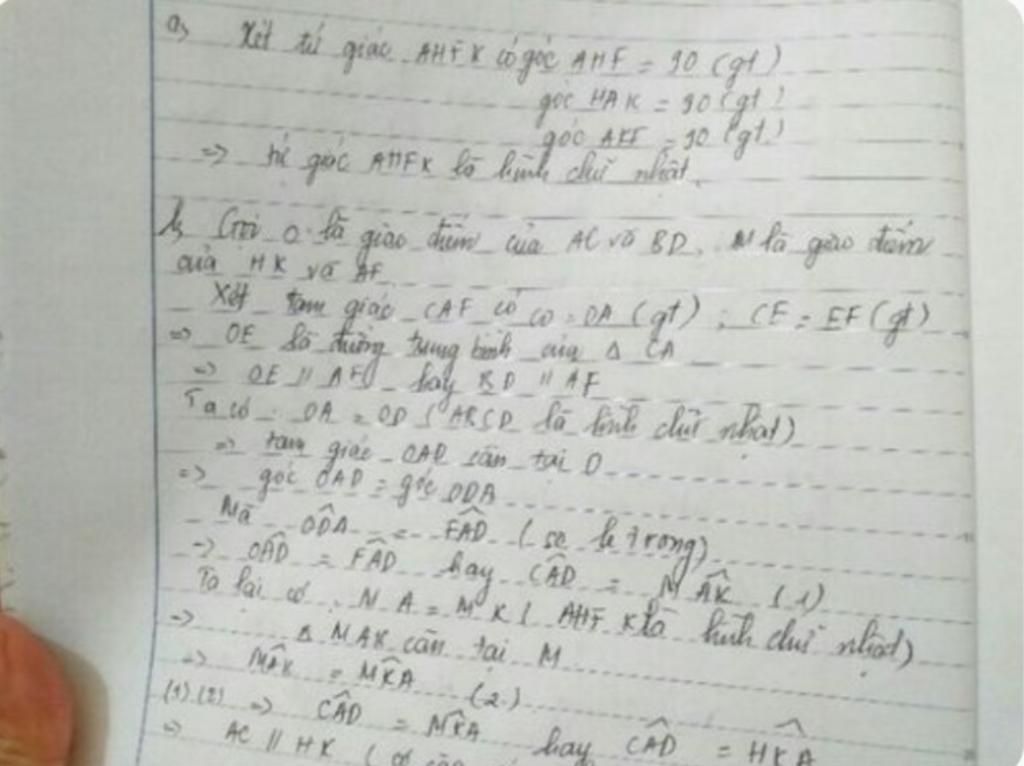 a) Xét tứ giác AHFK có góc AHF = 90 (gt)
góc HAK = 90 (gt)
góc AKF = 90 (gt)
=> tứ giác AHFK là hình chữ nhật.
b, Gọi O là giao điểm của AC và BD. M là giao điểm
của HK và AF
Xét tam giác CAF có CO = OA (gt) ; CE = EF (gt)
=> OE là đường trung bình của Δ CA
=> OE // AF hay BD // AF
Ta có : OA = OD ( ABCD là hình chữ nhật)
=> tam giác OAD cân tại O
=> góc OAD = góc ODA
Mà ODA = FAD ( so le trong)
=> OAD = FAD hay CAD = MAK (1)
Ta lại có : MA = MK ( AHFK là hình chữ nhật)
=> Δ MAK cân tại M
=> MAK = MKA (2)
(1) (2) => CAD = MKA hay CAD = HKA
=> AC // HK ( có cặp